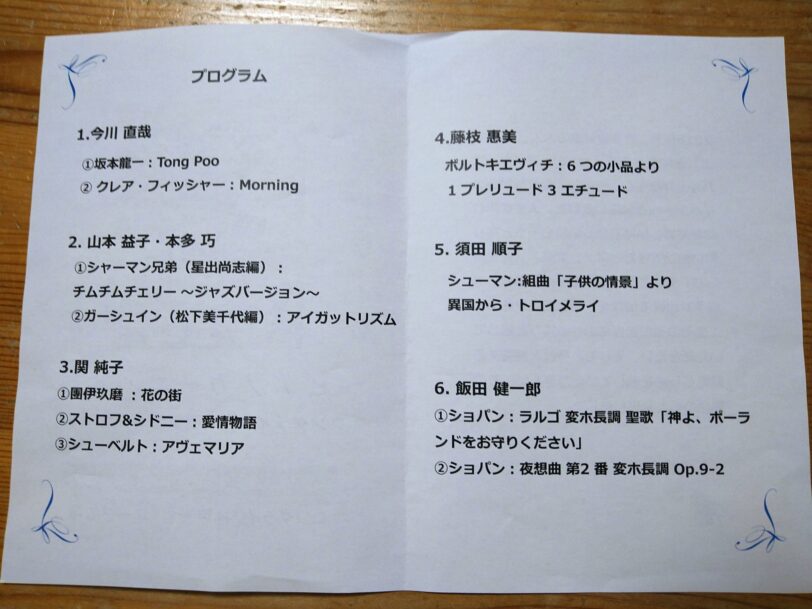 プログラム
1.今川 直哉
①坂本龍一：Tong Poo
② クレア・フィッシャー：Morning
2. 山本 益子・本多 巧
①シャーマン兄弟（星出尚志編）：
チムチムチェリー ～ジャズバージョン～
②ガーシュイン（松下美千代編）：アイガットリズム
3.関 純子
①團伊玖磨 ：花の街
②ストロフ&シドニー：愛情物語
③シューベルト：アヴェマリア
4.藤枝 惠美
ボルトキエヴィチ：6 つの小品より
1 プレリュード 3 エチュード
5. 須田 順子
シューマン:組曲「子供の情景」より
異国から・トロイメライ
6. 飯田 健一郎
①ショパン：ラルゴ 変ホ長調 聖歌「神よ、ポーラ
ンドをお守りください」
②ショパン：夜想曲 第2 番 変ホ長調 Op.9-2